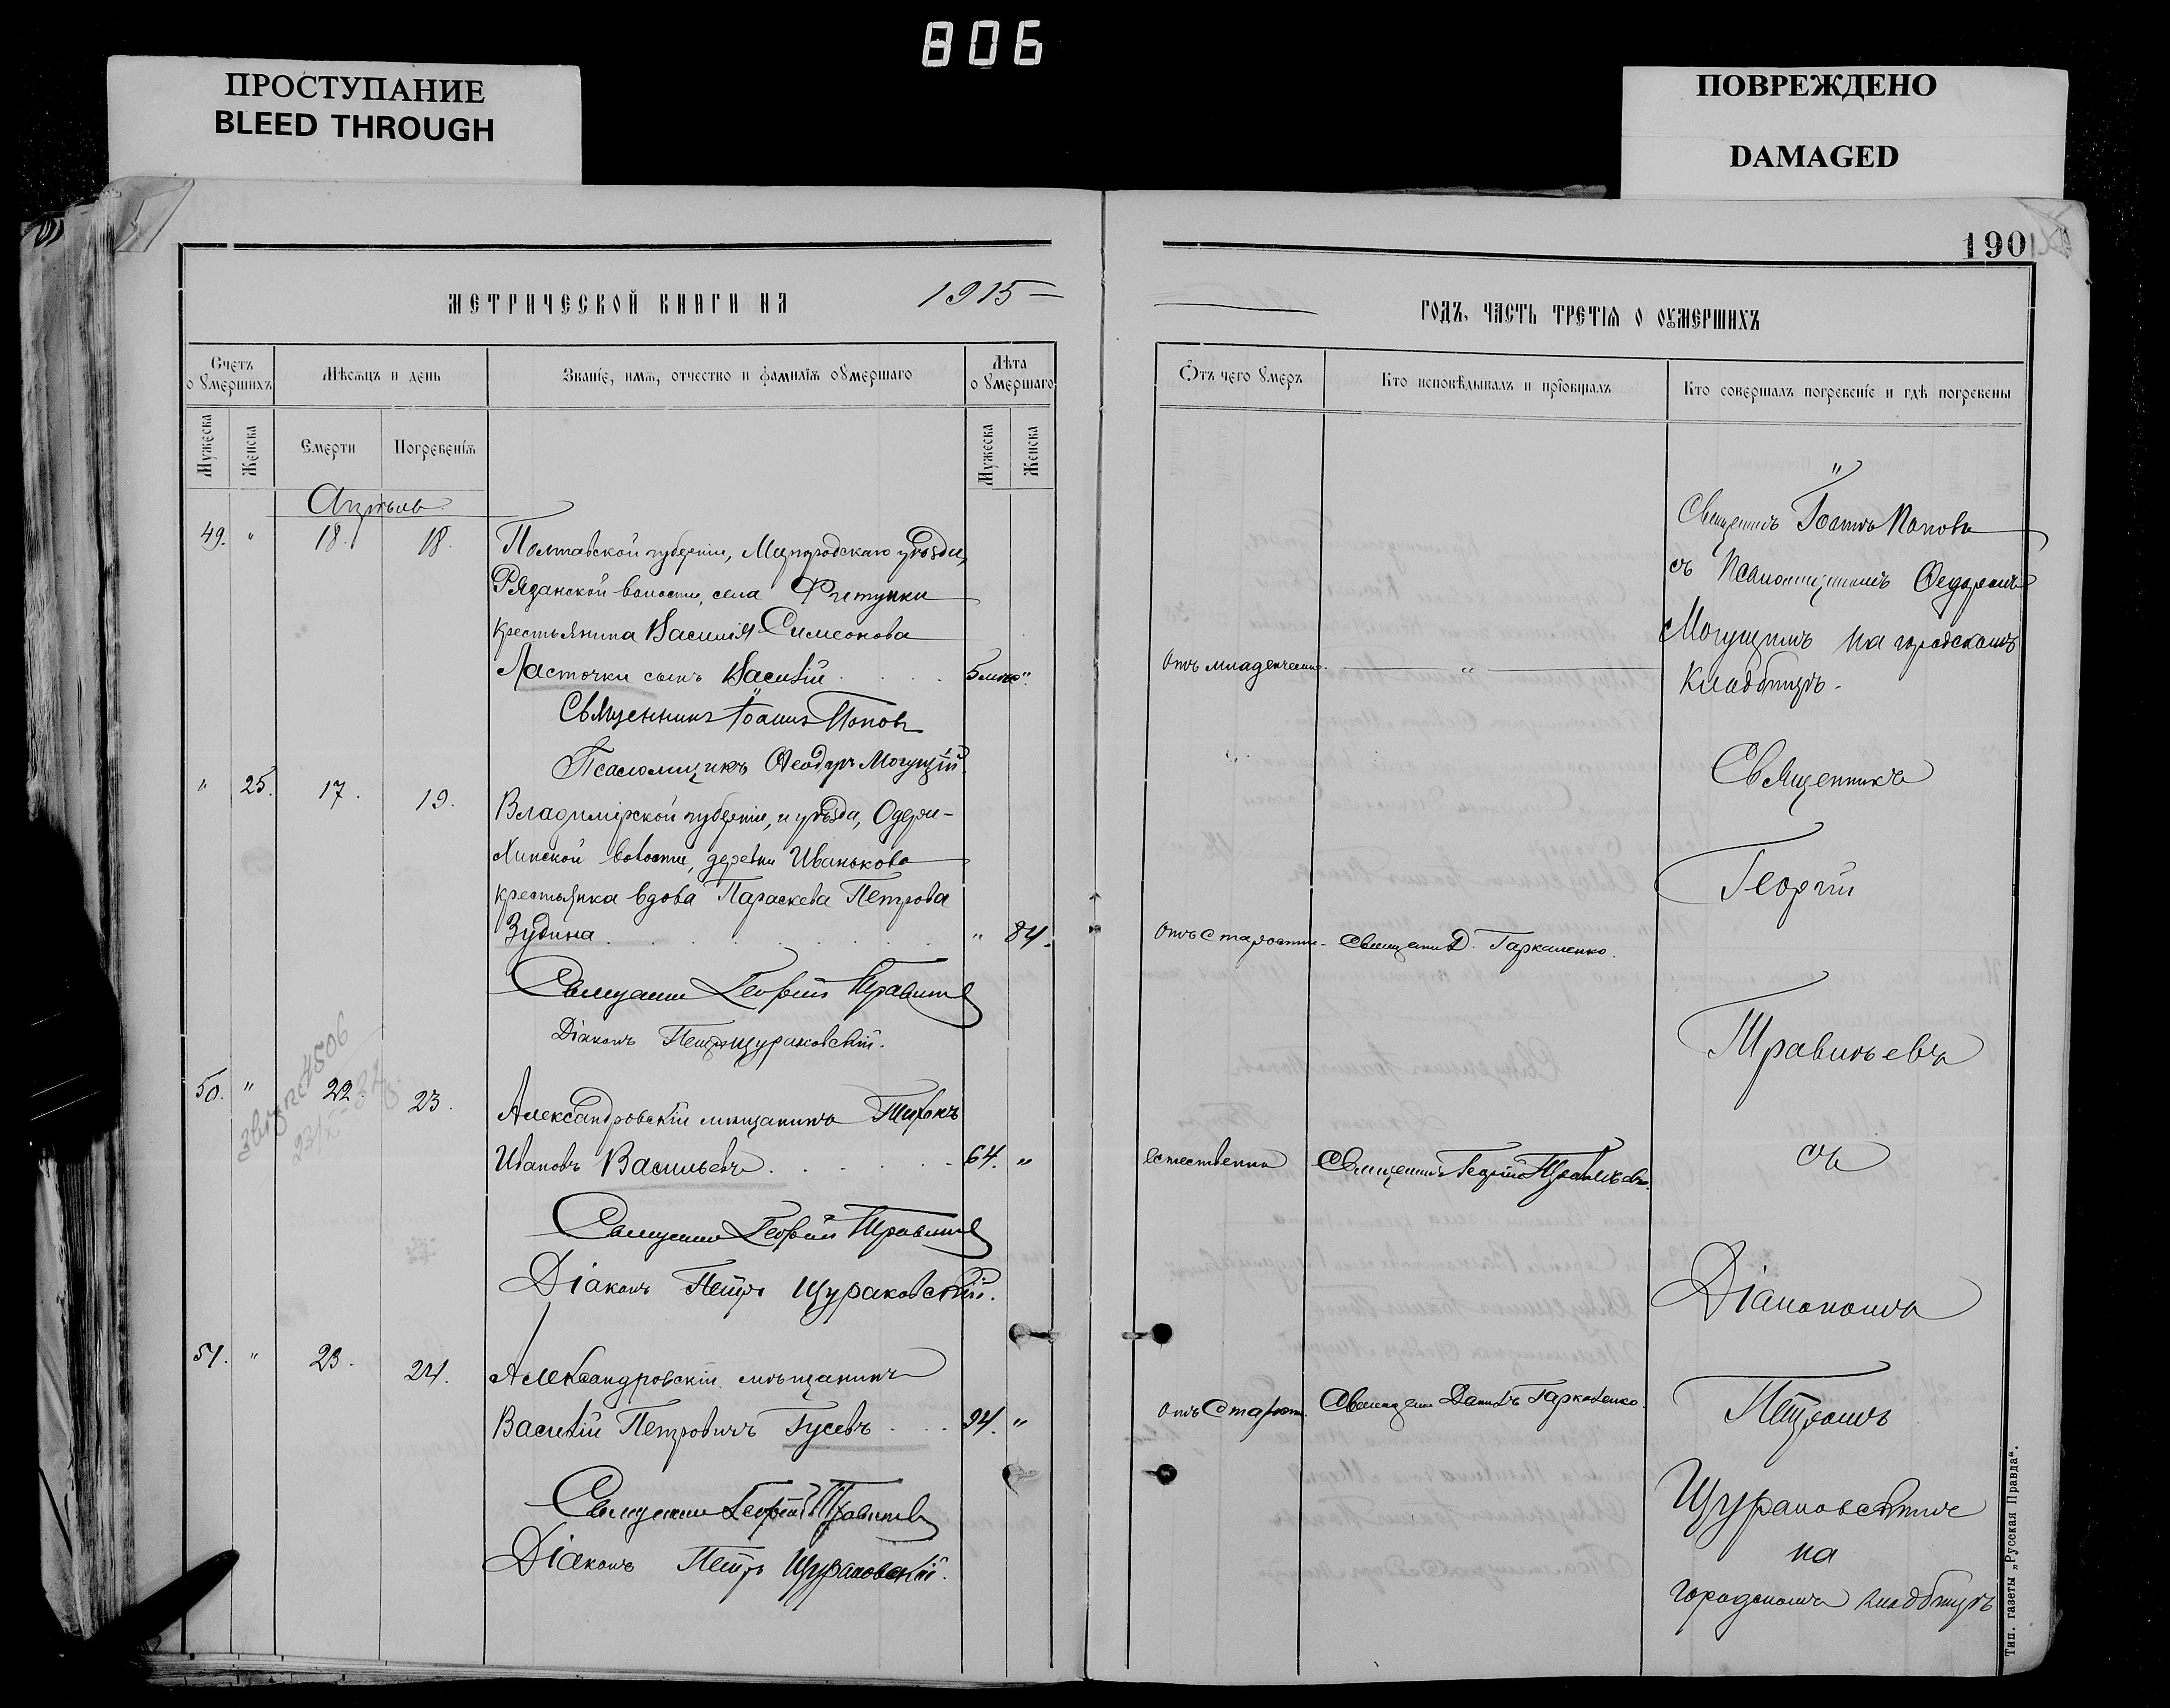 806
ПРОСТУПАНИЕ
BLEED THROUGH
ПОВРЕЖДЕНО
DAMAGED
190
МЕТРИЧЕСКОЙ КНИГИ НА 1915
Счетъ
оумершихъ
Мѣсяцъ и день
Званіе, имя, отчество и фамилія оумершаго
Лѣта
оумершаго
Мужеска
Женска
Смерти
Погребенія
Мужеска
Женска
Апрѣль
49. " 18. 18. Полтавской губерніи, уѣзда,
волости, села
крестьянина Василія Симеонова
Ласточки сынъ Василій 5
Священникъ Іоаннъ Поповъ
Псаломщикъ Ѳеодоръ Могущій
" 25. 17. 19. Владимірской губерніи, и уѣзда, Одери-
хинской волости, деревни Иваньково
крестьянка вдова Параскева Петрова
Зудина " 84.
Священникъ Георгій Травильевъ
Діаконъ Петръ Щураковскій.
50. " 22. 23. Александровскій мѣщанинъ Тихонъ
Ивановъ Васильевъ 64. "
Священникъ Георгій
Діаконъ Петръ Щураковскій.
51. " 23. 24. Александровскій мѣщанинъ
Василій Петровичъ Гусевъ 94. "
Священникъ Георгій
Діаконъ Петръ Щураковскій.
ГОДЪ, ЧАСТЬ ТРЕТІЯ О ОУМЕРШИХЪ
Отъ чего умеръ
Кто исповѣдывалъ и пріобщалъ
Кто совершалъ погребеніе и гдѣ погребены
"
Священникъ Іоаннъ Поповъ
съ Псаломщикомъ Ѳеодоромъ
Могущимъ на городскомъ
Кладбищѣ.
Отъ младенческой. "
Священникъ
Георгій
Отъ Старости. Священникъ Д. Гаркаленко.
Травильевъ
съ
естественно Священникъ Георгій Травильевъ.
Діакономъ
Петромъ
Отъ Старости. Священникъ Даніилъ Гаркаленко.
Щураковскимъ
на
городскомъ кладбищѣ
Тип. газеты „Русская Правда“.